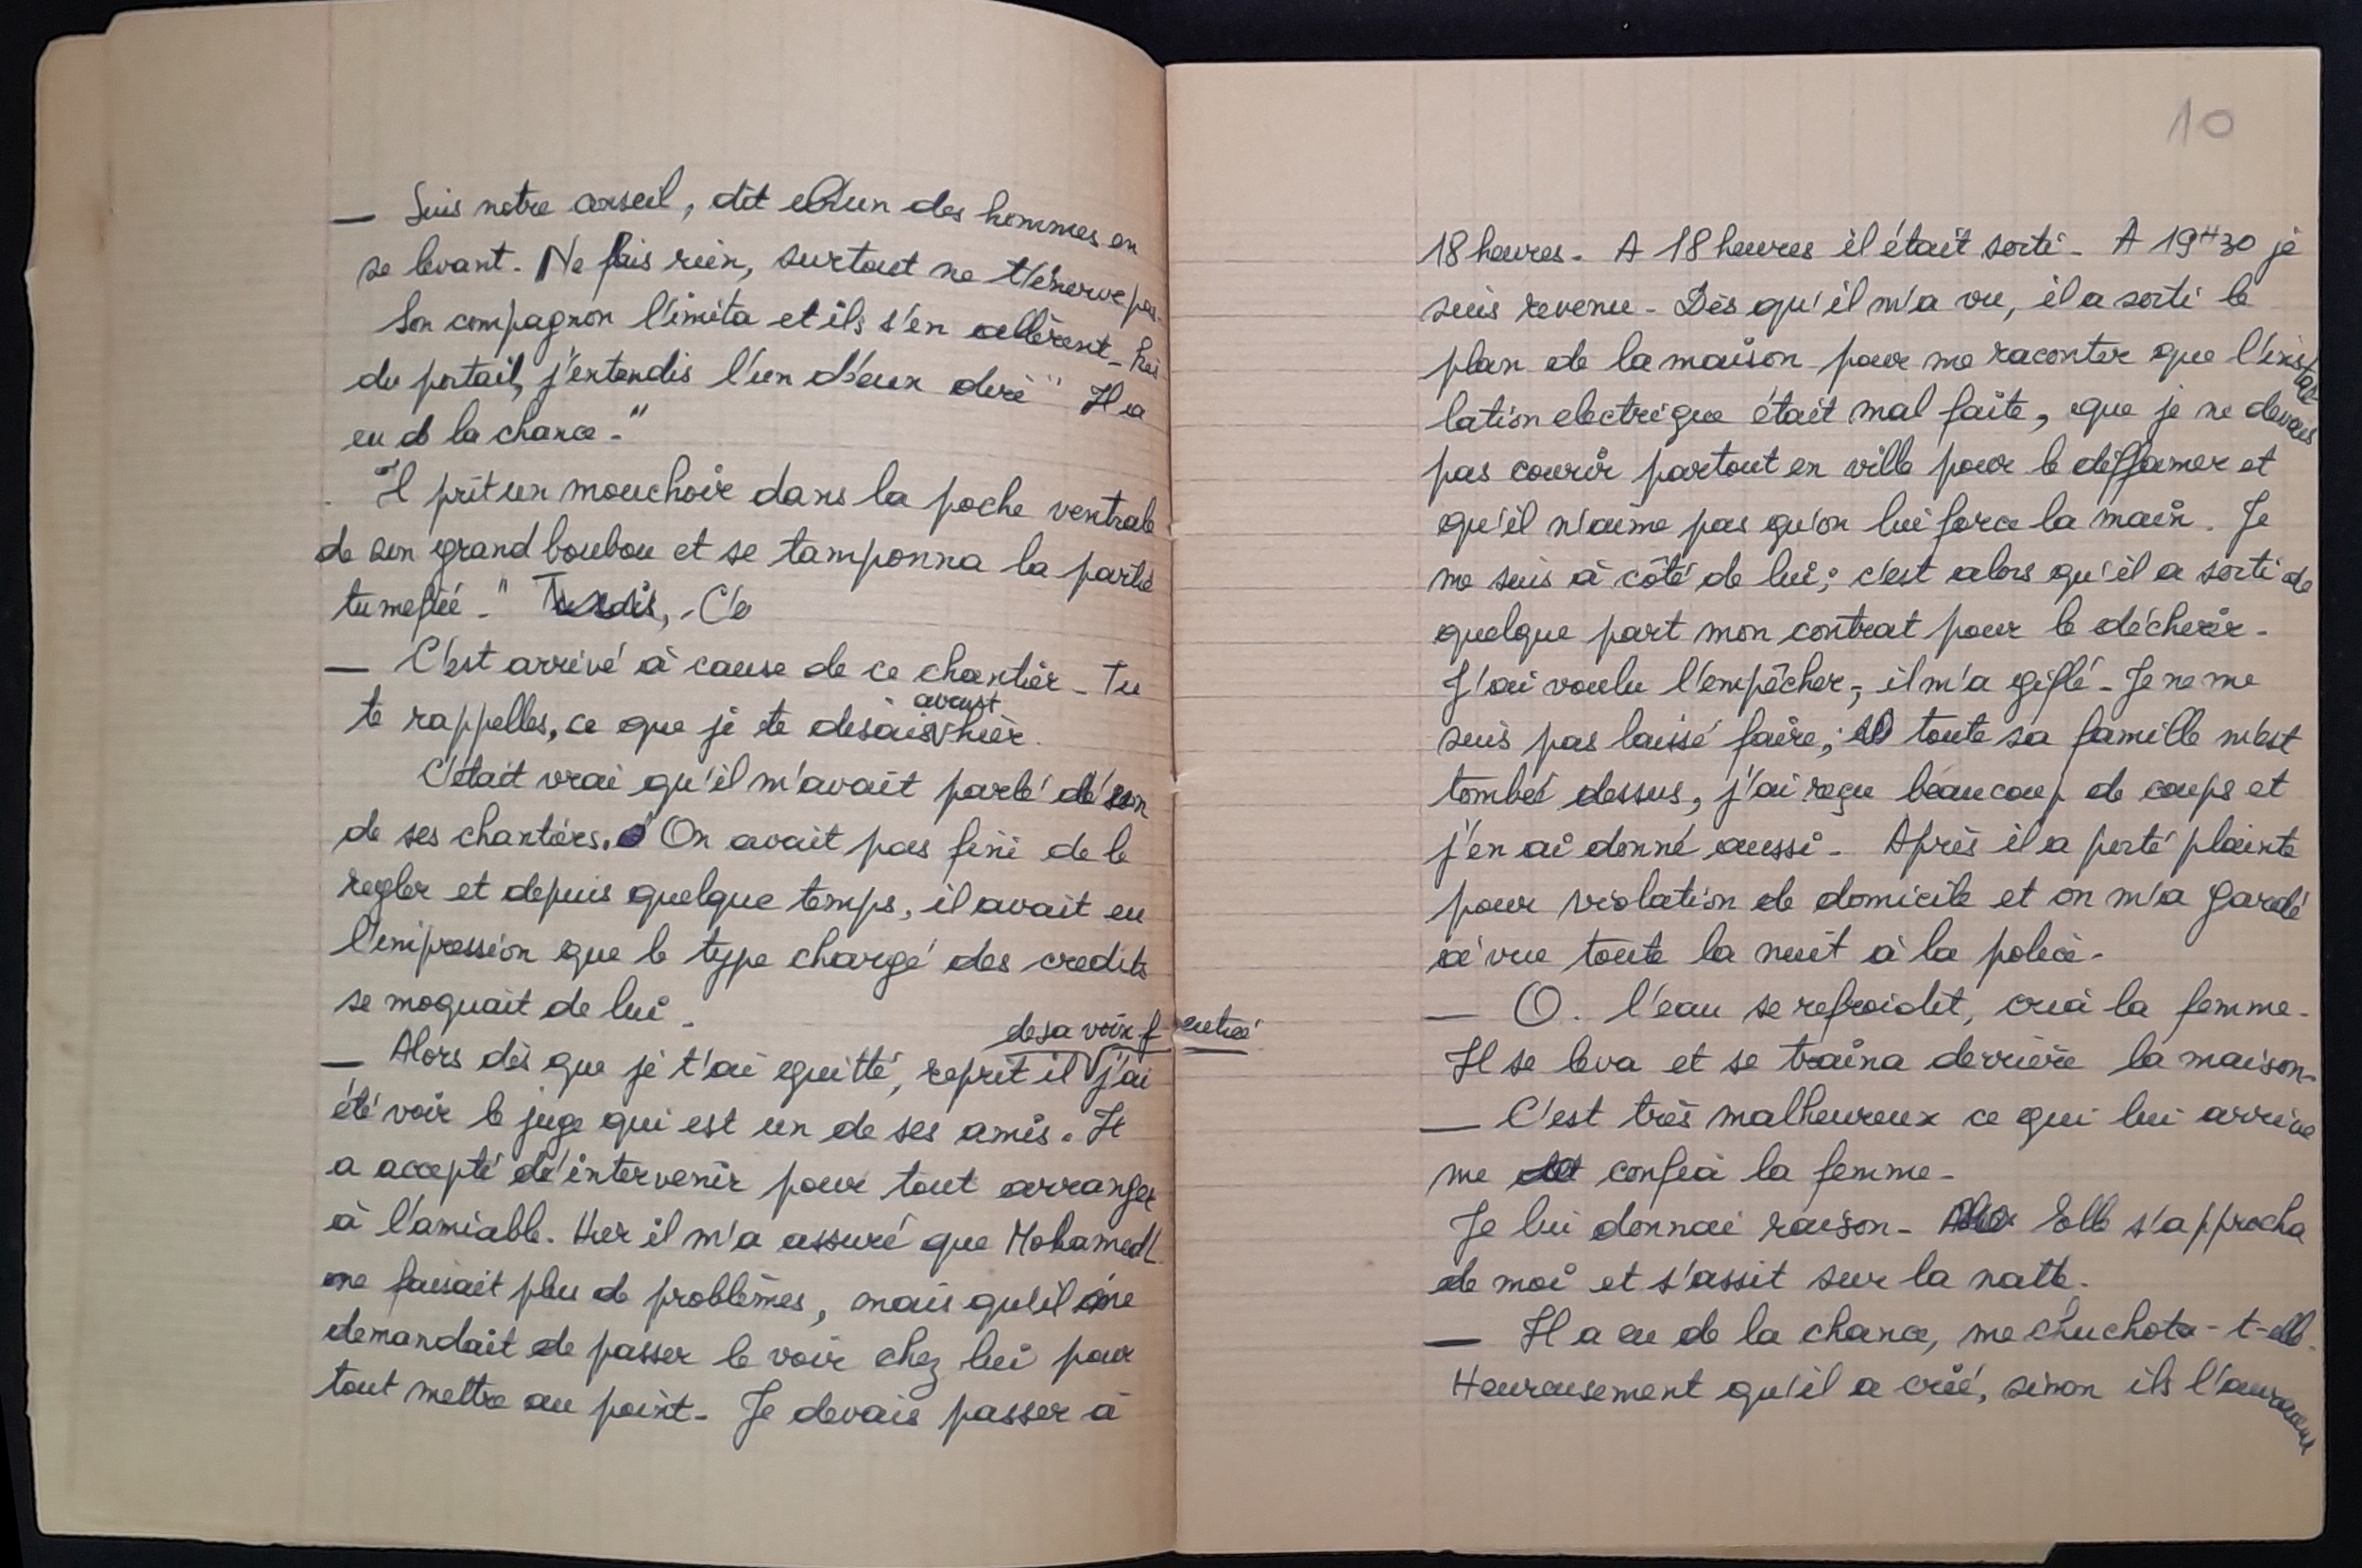 — Suis notre conseil, dit l'un des hommes en
se levant. Ne fais rien, surtout ne t'énerve pas.
Son compagnon l'imita et ils s'en allèrent -
du portail, j'entendis l'un d'eux dire " Il a
eu de la chance. "
Il prit un mouchoir dans la poche ventrale
de son grand boubou et se tamponna la partie
tumefiée - " C'e
— C'est arrivé à cause de ce chantier - Tu
te rappelles, ce que je te disais avant hier.
C'était vrai qu'il m'avait parlé de son
de ses chantiers. On avait pas fini de le
regler et depuis quelque temps, il avait eu
l'impression que le type chargé des credits
se moquait de lui -
— Alors dès que je t'ai quitté, reprit il de sa voix j'ai
été voir le juge qui est un de ses amis. Il
a accepté d'intervenir pour tout arranger
à l'amiable. Hier il m'a assuré que Mohamed
ne faisait plus de problèmes, mais qu'il me
demandait de passer le voir chez lui pour
tout mettre au point - Je devais passer à
10
18 heures - A 18 heures il était sorti - A 19H30 je
suis revenu - Dès qu'il m'a vu, il a sorti le
plan de la maison pour me raconter que l'instal
lation electrique était mal faite, que je ne devais
pas courir partout en ville pour le diffamer et
qu'il n'aime pas qu'on lui force la main. Je
me suis à côté de lui; c'est alors qu'il a sorti de
quelque part mon contrat pour le déchirer -
J'ai voulu l'empêcher, il m'a giflé - Je ne me
suis pas laissé faire; toute sa famille m'est
tombée dessus, j'ai reçu beaucoup de coups et
j'en ai donné aussi - Après il a porté plainte
pour violation de domicile et on m'a gardé
à vue toute la nuit à la police -
— O. l'eau se refroidit, cria la femme -
Il se leva et se traîna derrière la maison -
— C'est très malheureux ce qui lui arrive
me confia la femme -
Je lui donnai raison - Elle s'approcha
de moi et s'assit sur la natte.
— Il a eu de la chance, me chuchota-t-elle.
Heureusement qu'il a crié, sinon ils l'auraient